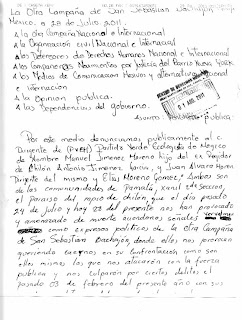 La Otra Campaña de San Sebastian Bachajón, Chiapas
Mexico. a 28 de Julio. 2011.
A la Otra Campaña Nacional e Internacional
A la Organización civil Nacional e Internacional
A los Defensores de Derechos Humanos Nacional e Internacional
A los Companeros Movimientos por Justicia del Barrio Nueva York
A los Medios de Comunicacion Masivos y alternativos Nacional
e Internacional
A la Opinion publica.
A las Dependencias del gobierno.
Asunto: publica.
Por este medio denunciamos publicamente al c.
Dirigente de (PVEM) Partido Verde Ecologista de Mexico
de Nombre Manuel Jimenez Moreno hijo del ex Regidor
de Chilón Antonio Jimenez Garcia, y Juan Alvaro Moreno
Dirente del mismo y Elias Moreno Gomez, Ambos son
de las comunidades de Pamala, xanil 2ª sección,
el Paraiso del mpio de chilon, que el dia pasado
24 de julio y hoy 28 del presente nos han provocado
y amenazado de muerte diciendonos señales verbales
como expresos politicos de la Otra Campaña
de San Sebastian Bachajón, donde ellos nos provocan
queriendo caernos en su confrontación como son
ellos mismos los que nos atacaron con la fuerza
publica y nos culparon por ciertos delitos el
pasado 03 de febrero del presente año con sus